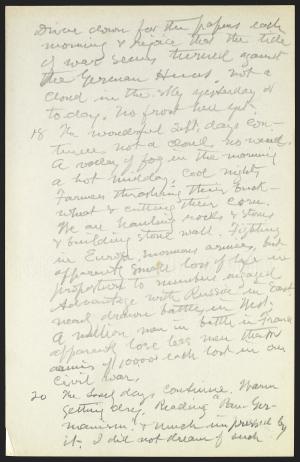 Drive down for the papers each
morning & rejoice that the tide
of war seems turned against
the German Huns. Not a
cloud in the sky yesterday or
to day. No frost here yet.
18 The wonderful Sept. days con-
tinue not a cloud no wind.
A valley of fog in the morning
a hot midday. Cool nights
Farmers thrashing their buck-
wheat & cutting their corn.
We are hauling rocks & stone
& building stone wall. Fighting
in Europe, enormous armies, but
apparently small loss of life in
proportion to numbers engaged
Advantage with Russia in East
nearly drawn battle in West.
A million men in battle in France
apparently lose less men than
armies of 100000 each lost in our
Civil war.
20 The lovely days continue. Warm
getting dry. Reading "Pan-Ger-
manism" & much impressed by
it. I did not dream of such